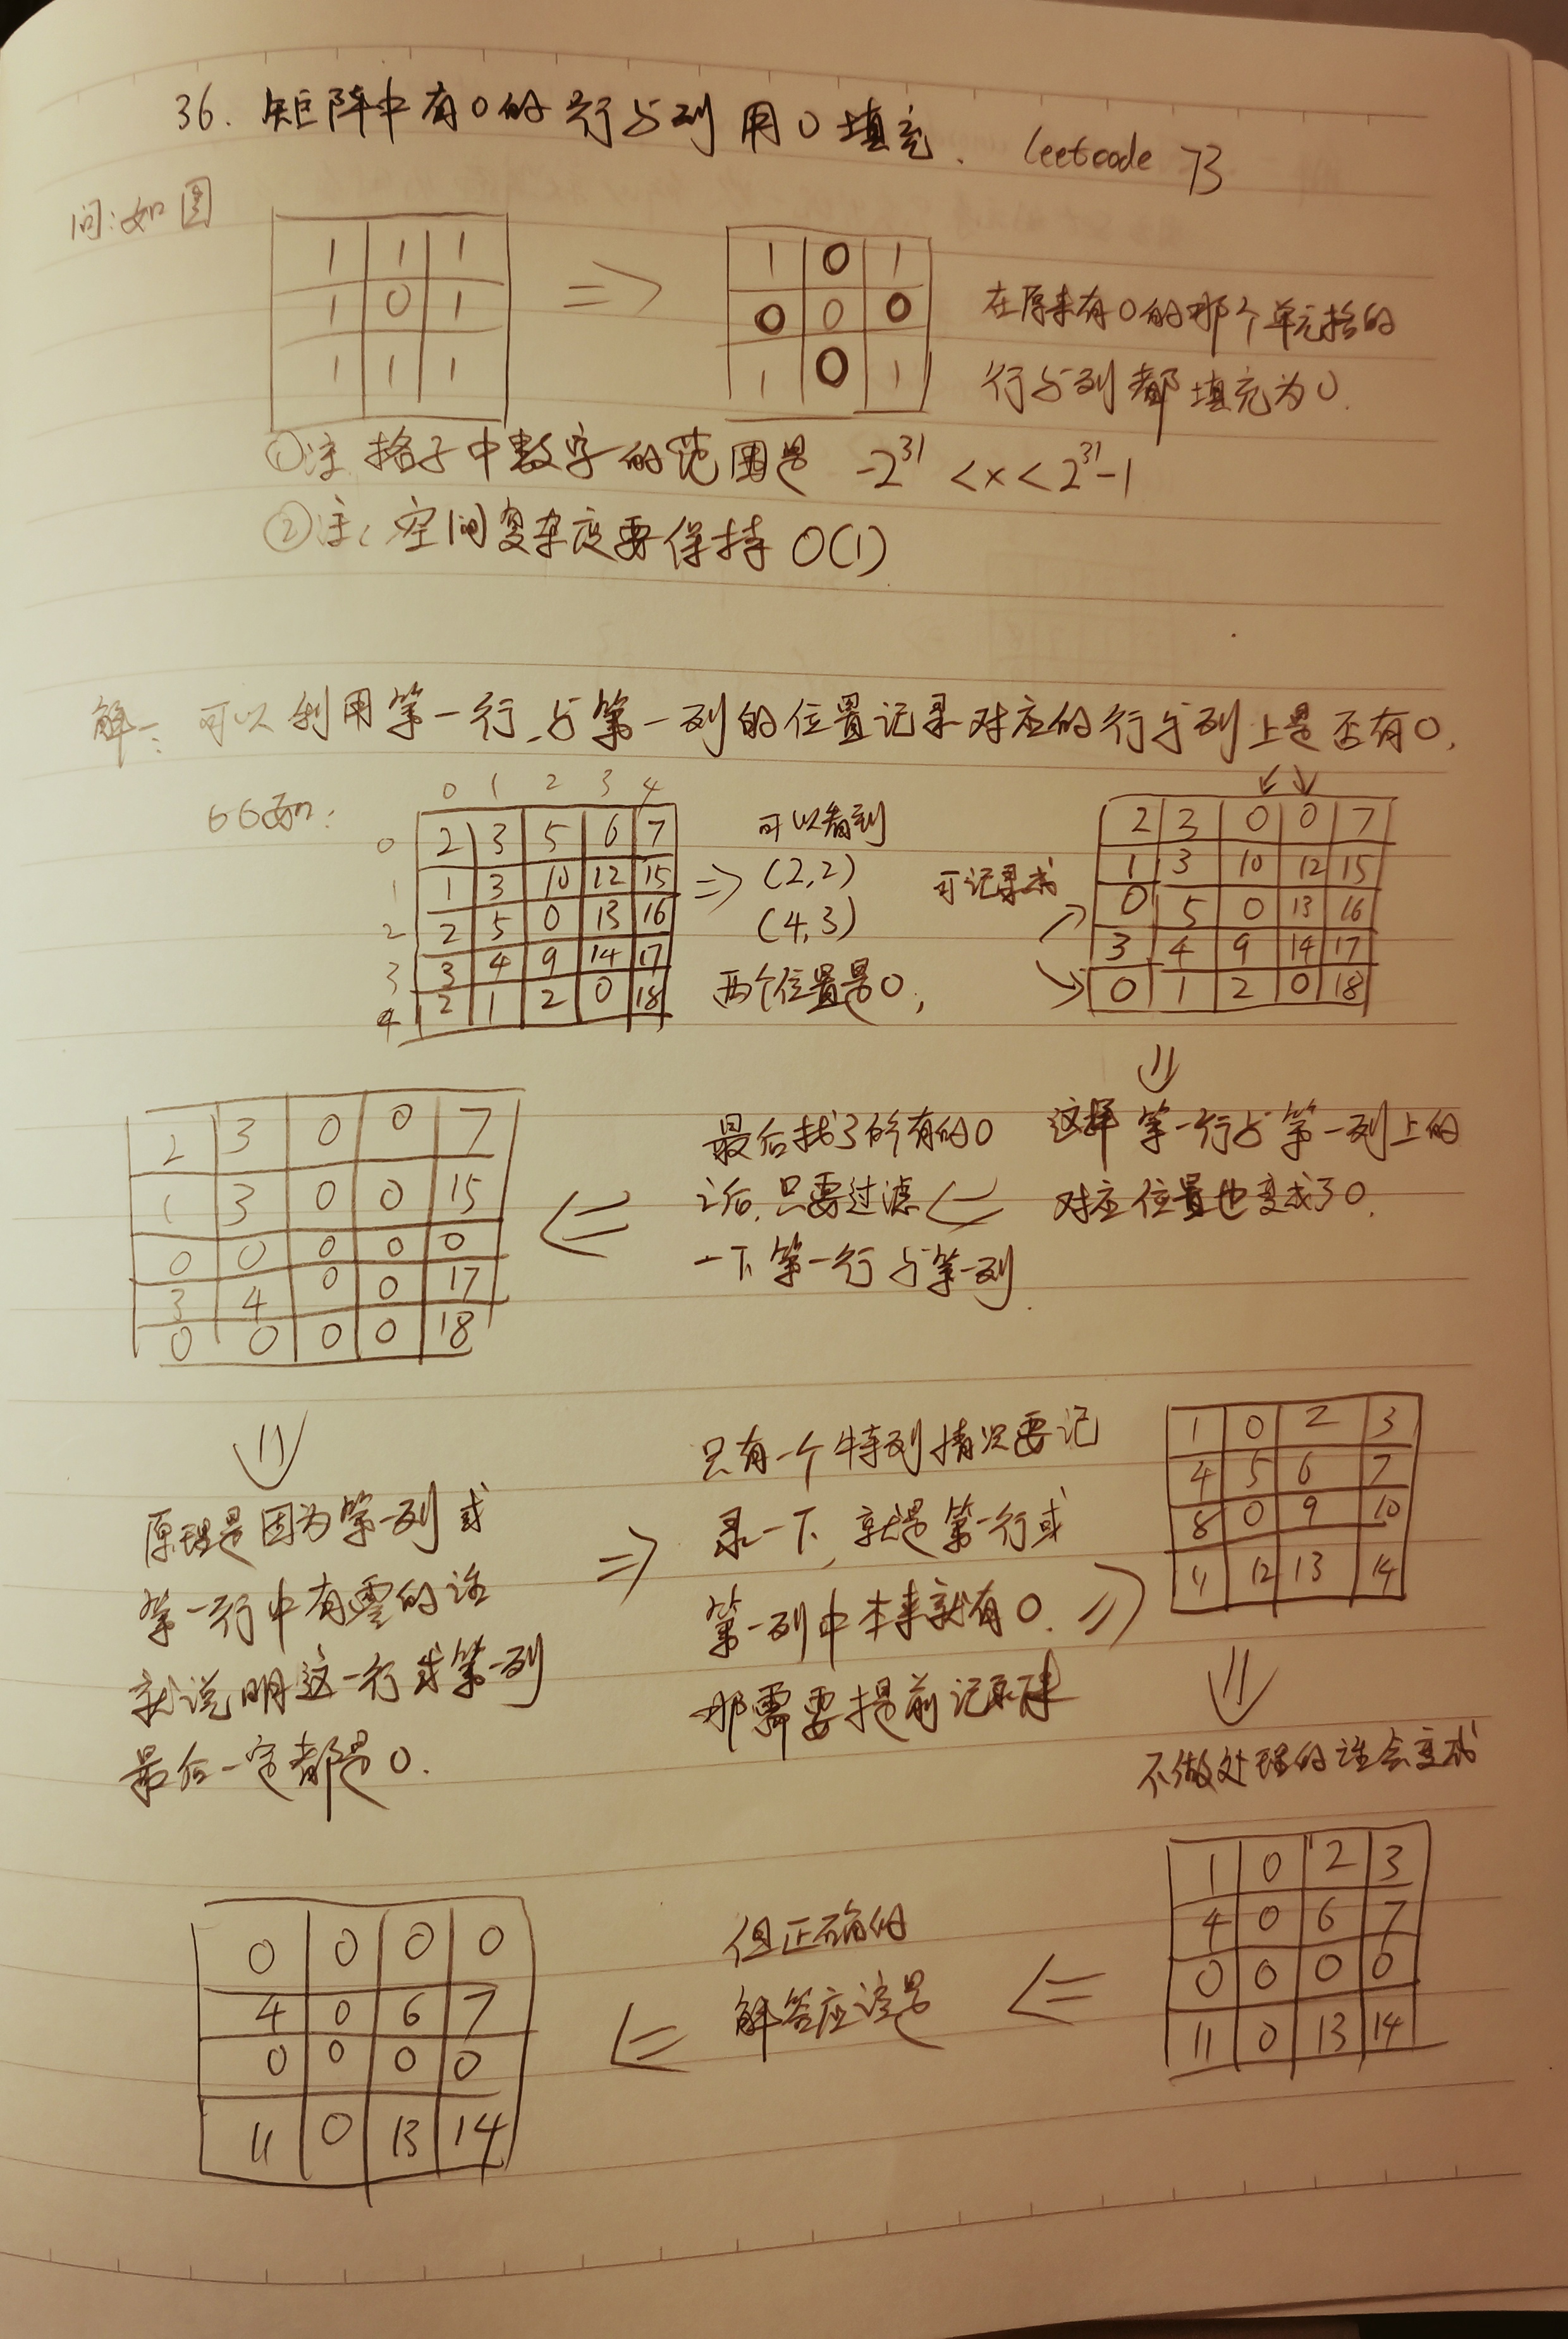 36. 矩阵中有0的行与列用0填充. leetcode 73
问:如图
1 1 1
1 0 1
1 1 1
⇒
1 0 1
0 0 0
1 0 1
在原来有0的那个单元格的
行与列都填充为0.
①注 格子中数字的范围是 -2^31 < x < 2^31-1
②注: 空间复杂度要保持 O(1)
解一: 可以利用第一行与第一列的位置记录对应的行与列上是否有0,
0 1 2 3 4
0 2 3 5 6 7
1 1 3 10 12 15
2 2 5 0 13 16
3 3 4 9 14 17
4 2 1 2 0 18
⇒
可以看到
(2,2)
(4,3)
两个位置是0,
可记录成
2 3 0 0 7
1 3 10 12 15
0 5 0 13 16
3 4 9 14 17
0 1 2 0 18
这样第一行与第一列上的
对应位置也变成了0.
最后找了所有的0
之后,只要过滤
一下第一行与第一列.
2 3 0 0 7
1 3 0 0 15
0 0 0 0 0
3 4 0 0 17
0 0 0 0 18
原理是因为第一列或
第一行中有零的话
就说明这一行或第一列
最后一定都是0.
⇒
只有一个特列情况要记
录一下,就是第一行或
第一列中本来就有0.
那需要提前记录下来
⇒
1 0 2 3
4 5 6 7
8 0 9 10
11 12 13 14
不做处理的话会变成
1 0 2 3
4 0 6 7
0 0 0 0
11 0 13 14
但正确的
解答应该是
0 0 0 0
4 0 6 7
0 0 0 0
11 0 13 14